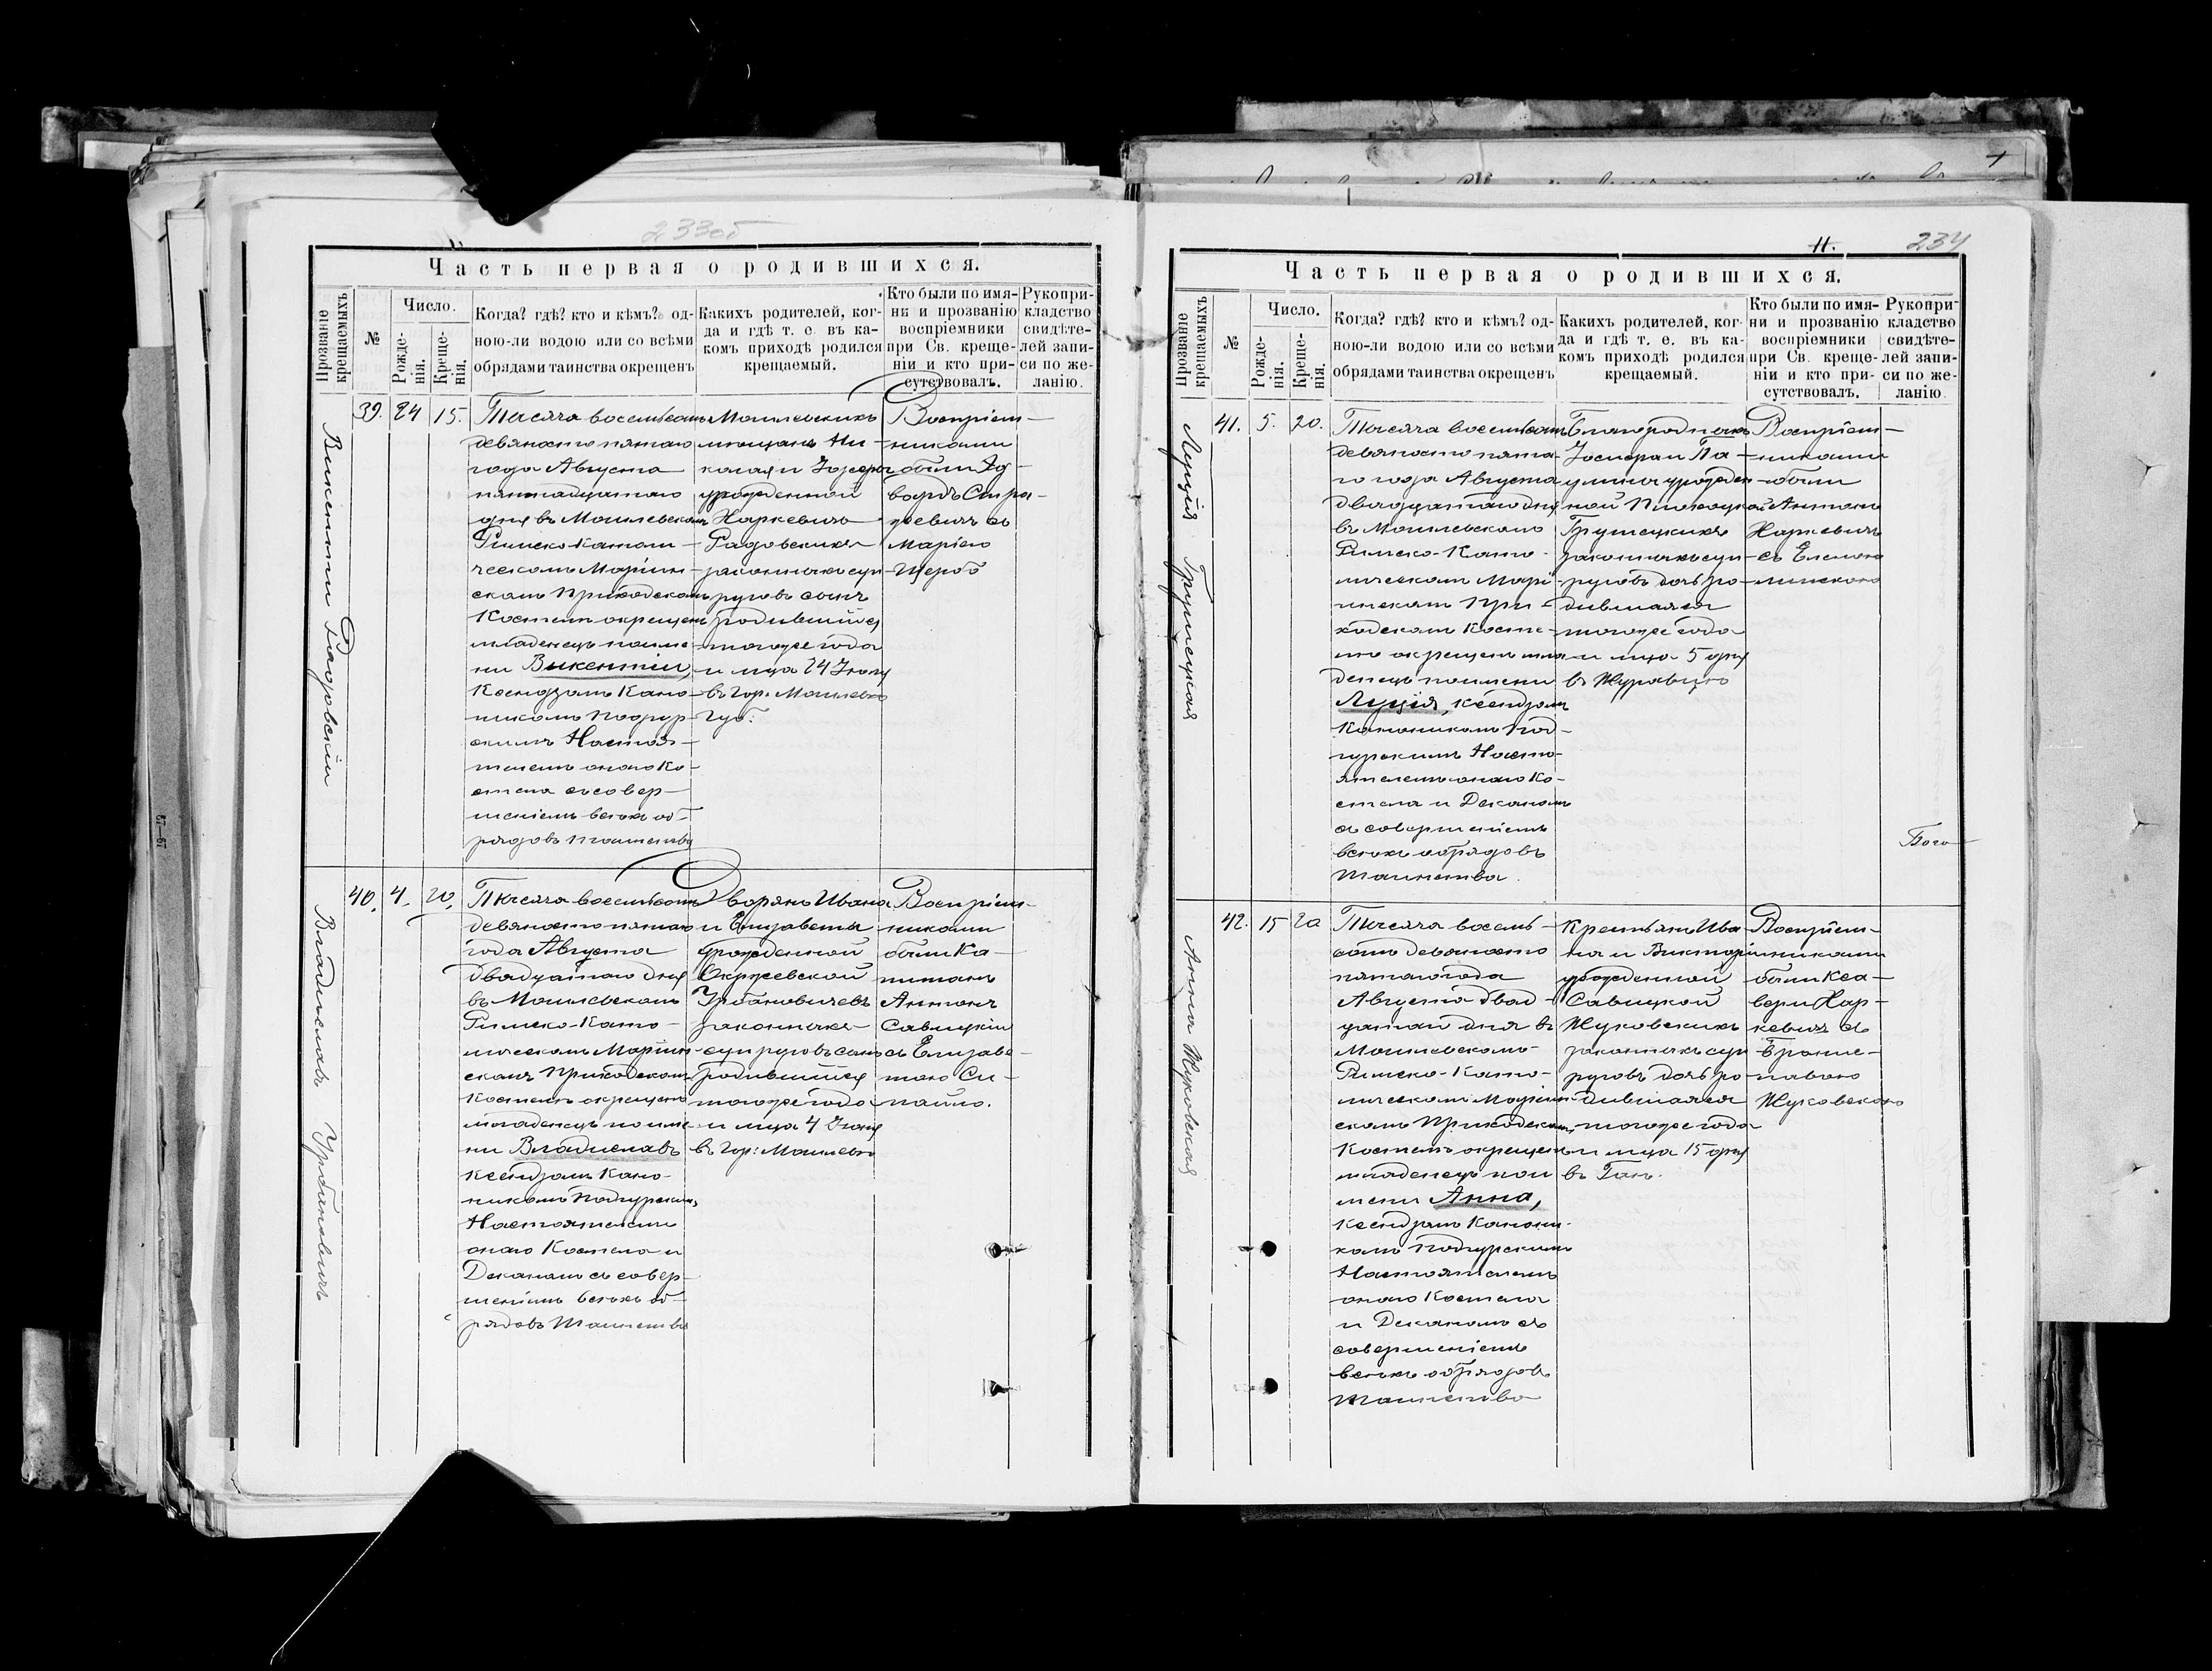 233об
Часть первая о родившихся.
Прозваніе крещаемыхъ
№
Число.
Рожде-
нія.
Креще-
нія.
Когда? гдѣ? кто и кѣмъ? од-
ною-ли водою или со всѣми
обрядами таинства окрещенъ
Какихъ родителей, ког-
да и гдѣ т. е. въ ка-
комъ приходѣ родился
крещаемый.
Кто были по имя-
ни и прозванію
воспріемники
при Св. креще-
ніи и кто при-
сутствовалъ.
Рукопри-
кладство
свидѣте-
лей запи-
си по же-
ланію.
Викентій Радовскій
39.
24
15.
Тысяча восемьсотъ
девяносто пятаго
года Августа
пятнадцатаго
дня въ Могилевскомъ
Римско-Катол-
ческомъ Маріин-
скомъ Приходскомъ
Костелѣ окрещенъ
младенецъ по име-
ни Викентій,
Ксендзомъ Кано-
никомъ Подгур-
скимъ Настоя-
телемъ онаго Ко-
стела съ совер-
шеніемъ всѣхъ об-
рядовъ Таинства
Могилевскихъ
мѣщанъ Ни-
колая и Іозефы
урожденной
Наркевичъ
Радовскихъ
законныхъ суп-
руговъ сынъ
родившійся
тогоже года
и мца 24 Іюля
въ Гор: Могилевѣ
Губ:
Воспріем-
никами
были Эд-
вардъ Стра-
шевичъ съ
Маріею
Щербо
Владиславъ Урбановичъ
40.
4.
20.
Тысяча восемьсотъ
девяносто пятаго
года Августа
двадцатаго дня
въ Могилевскомъ
Римско-Като-
лическомъ Маріин-
скомъ Приходскомъ
Костелѣ окрещенъ
младенецъ по име-
ни Владиславъ
Ксендзомъ Кано-
никомъ Подгурскимъ,
Настоятелемъ
онаго Костела и
Деканомъ съ совер-
шеніемъ всѣхъ об-
рядовъ Таинства
Дворянъ Ивана
и Елизаветы
урожденной
Урбановичевъ
законныхъ
супруговъ сынъ
родившійся
тогоже года
и мца 4 Іюня
въ Гор: Могилевѣ
Воспріем-
никами
были Ка-
питанъ
Антонъ
Савицкій
съ Елизаве-
тою Си-
пайло.
11.
234
Часть первая о родившихся.
Прозваніе крещаемыхъ
№
Число.
Рожде-
нія.
Креще-
нія.
Когда? гдѣ? кто и кѣмъ? од-
ною-ли водою или со всѣми
обрядами таинства окрещенъ
Какихъ родителей, ког-
да и гдѣ т. е. въ ка-
комъ приходѣ родился
крещаемый.
Кто были по имя-
ни и прозванію
воспріемники
при Св. креще-
ніи и кто при-
сутствовалъ.
Рукопри-
кладство
свидѣте-
лей запи-
си по же-
ланію.
Луція Грушецкая
41.
5.
20.
Тысяча восемьсотъ
девяносто пята-
го года Августа
двадцатаго дня
въ Могилевскомъ
Римско-Като-
лическомъ Марі-
инскомъ При-
ходскомъ Косте-
лѣ окрещенъ мла-
денецъ по имени
Луція, Ксендзомъ
Каноникомъ Под-
гурскимъ Насто-
ятелемъ онаго Ко-
стела и Деканомъ
съ совершеніемъ
всѣхъ обрядовъ
Таинства.
Благородныхъ
Іосифа и Па-
улины урожден-
ной
Грушецкихъ
законныхъ суп-
руговъ дочь ро-
дившаяся
тогоже года
и мца 5 дня
въ Журавцѣ
Воспріем-
никами
были
Антонъ
Наркевичъ
съ
Бого
Анна Жуковская
42.
15
20
Тысяча восемь-
сотъ девяносто
пятаго года
Августа двад-
цатаго дня въ
Могилевскомъ
Римско-Като-
лическомъ Маріин-
скомъ Приходскомъ
Костелѣ окрещенъ
младенецъ по и
мени Анна,
Ксендзомъ Канони-
комъ Подгурскимъ
Настоятелемъ
онаго Костела
и Деканомъ съ
совершеніемъ
всѣхъ обрядовъ
Таинства
Крестьянъ Ива
на и Викторіи
урожденной
Савицкой
Жуковскихъ
законныхъ суп
руговъ дочь ро-
дившаяся
тогоже года
и мца 15 дня
въ
Воспріем-
никами
были Кса-
верій Нар-
кевичъ съ
Брони-
славою
Жуковскою